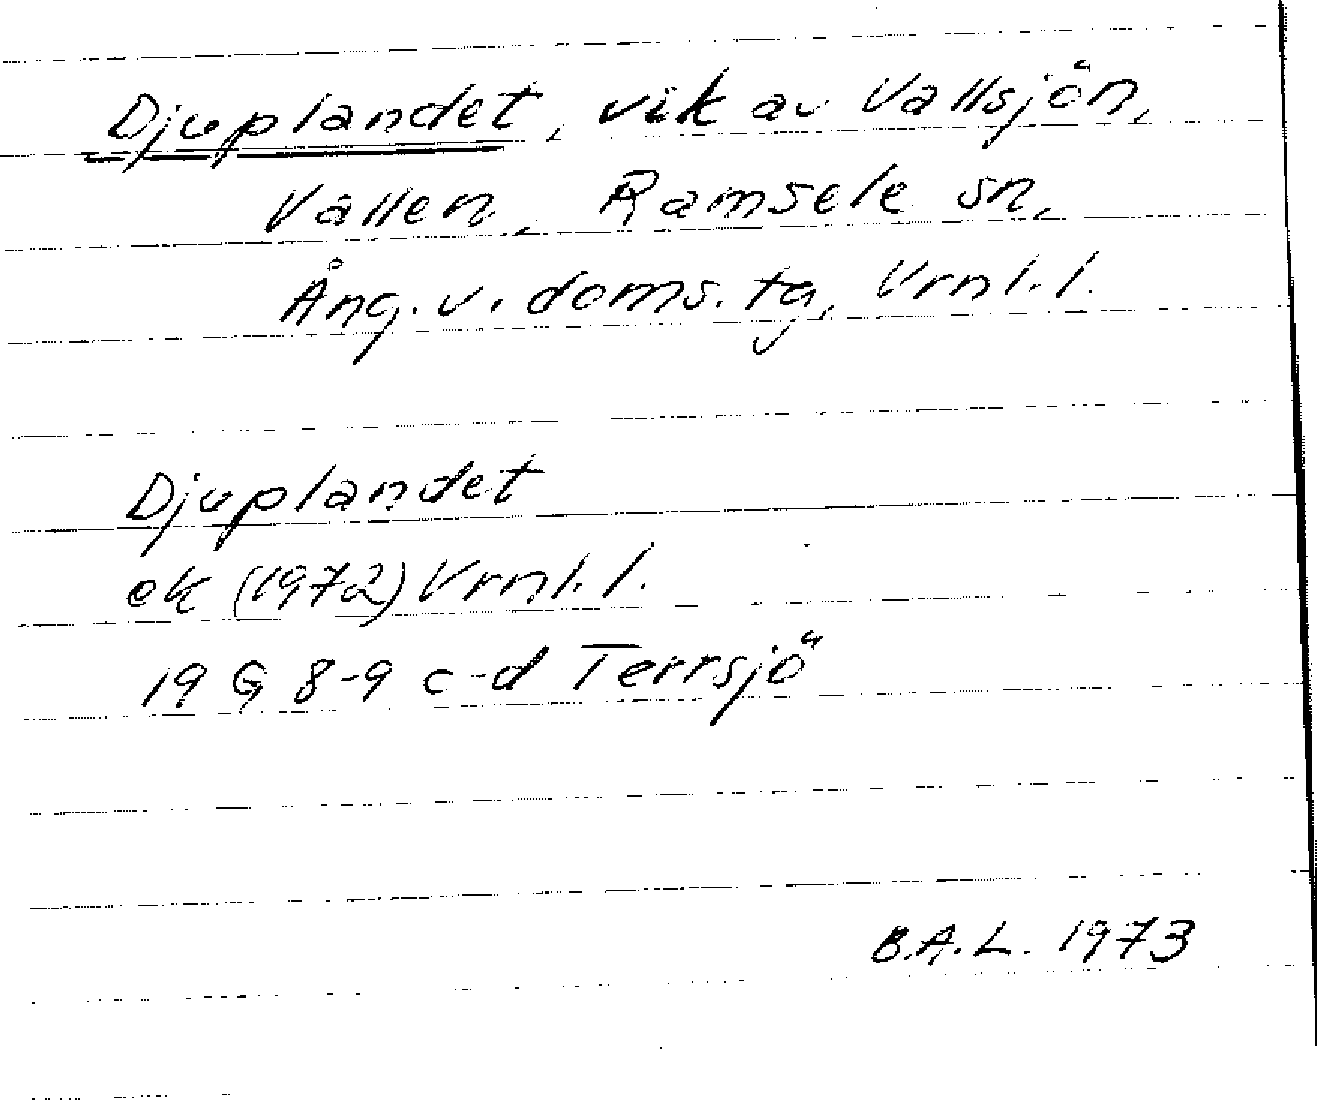 Djuplandet, vik av Vallsjön,
Vallen, Ramsele sn,
Ång. v. doms. tg, Vrnl. l.
Djuplandet
ek (1972) Vrnl. l.
19 G 8-9 c-d Terrsjö
B.A.L. 1973